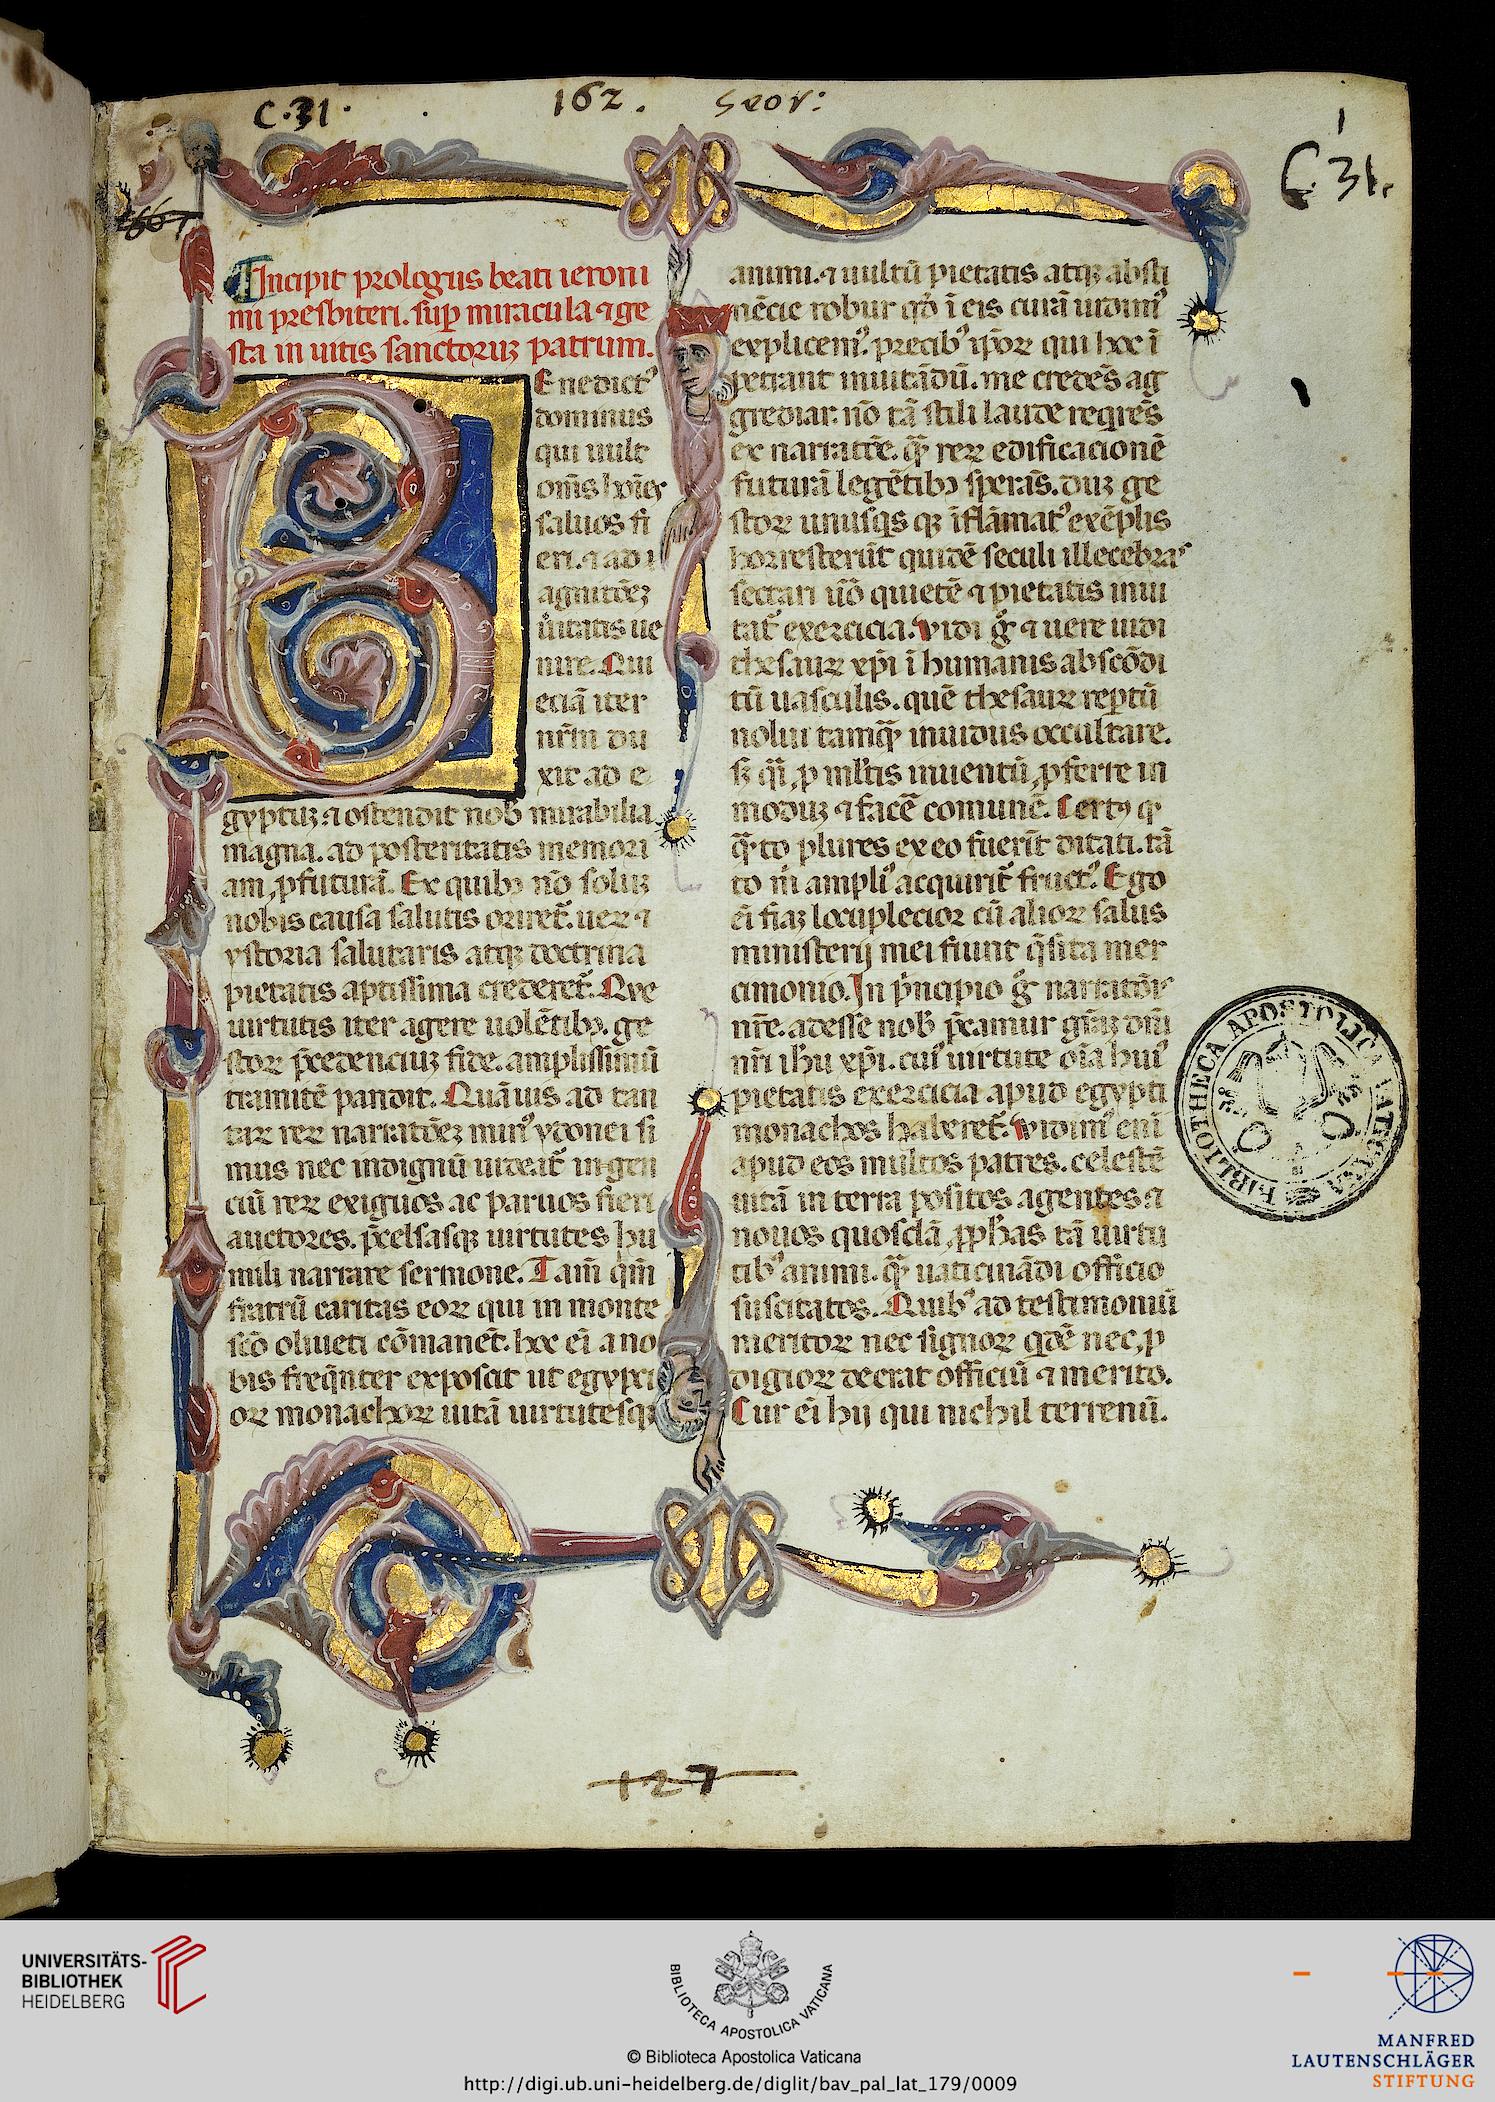 C.31.
162.
C.31.
1
Incipit prologus beati ieroni
mi presbiteri. sup̱ miracula ⁊ ge
sta in uitis sanctoruꝫ patrum.
Benedictꝰ
dominus
qui uult
om̄s hoı̄es
saluos fi
eri. ⁊ ad
agnitōeꝫ
ū̓itatis ue
nire. Qui
eciā iter
nr̄m du
xit ad e
gyptuꝫ ⁊ ostendit nob̄ mirabilia
magna. ad posteritatis memori
am ꝓfuturā. Ex quibꝫ nō soluꝫ
nobis causa salutis oriret᷑. ueꝝ ⁊
ystoria salutaris atqꝫ doctrina
pietatis aptissima crederet᷑. Que
uirtutis iter agere uolētibꝫ. ge
stoꝝ p̄cedenciuꝫ fide. amplissimū
tramitē pandit. Quāuis ad tan
taꝝ reꝝ narratōeꝫ minꝰ ydonei si
mus nec indignū uideat᷑ in gen
ciū reꝝ exiguos ac paruos fieri
auctores. p̄celsasqꝫ uirtutes hu
mili narrare sermone. Tam̄ qm̄
fratrū caritas eoꝝ qui in monte
sc̄o oliueti cōmanēt. hoc ei̅ a no
bis freq̄nter exposcit ut egypti
oꝝ monachoꝝ uitā uirtutesqꝫ
animi. ⁊ uultū pietatis atqꝫ absti
nēcie robur qd̓ ī eis corā uidimꝰ
explicemꝰ. precibꝰ ip̄oꝝ qui hoc ī
petrant inuitādū. me credēs ag
grediar. nō tā stili laude reqrēs
ex narratōe. q̄ꝫ reꝝ edificacionē
futurā legētibꝫ sperās. duꝫ ge
stoꝝ unusqs qꝫ īflāmatꝰ exēplis
horrescerūt quidē seculi illecebras
sectari u̅o quietē ⁊ pietatis inui
tat᷑ exercicia. Vidi g̊ ⁊ uere uidi
thesauꝝ xp̄i ī humanis abscōdi
tū uasculis. quē thesauꝝ reptū
nolui tamq̄ꝫ inuidus occultare.
sꝫ q̄i ꝓ ml̓tis inuentū ꝓferre in
moduꝫ ⁊ facē comunē. Certꝰ qꝫ
q̄to plures ex eo fuerīt ditati. tā
to m̄ ampliꝰ acquirit᷑ fructꝰ. Ego
ei̅ fiaꝫ locuplecior cū alioꝝ salus
ministerij mei fiunt q̄sita mer
cimonio. In p̄ncipio g̊ narratōis
nr̄e. adesse nob̄ p̄camur gr̄aꝫ dn̄i
nr̄i ihū xp̄i. cuiꝰ uirtute oı̄a huiꝰ
pietatis exercicia apud egypti
monachos haberet᷑. Vidimꝰ eni̅
apud eos multos patres. celestē
uitā in terra positos agentes ⁊
nouos quosdā ꝓph̄as tā uirtu
tibꝰ animi. q̄ꝫ uaticinādi officio
suscitatos. Quibꝰ ad testimoniū
meritoꝝ nec signoꝝ qdē nec ꝓ
digioꝝ deerat officiū ⁊ merito.
Cur ei̅ hij qui nichil terrenū.
BIBLIOTHECA APOSTOLICA VATICANA
127
UNIVERSITÄTS-
BIBLIOTHEK
HEIDELBERG
BIBLIOTECA APOSTOLICA VATICANA
© Biblioteca Apostolica Vaticana
http://digi.ub.uni-heidelberg.de/diglit/bav_pal_lat_179/0009
MANFRED
LAUTENSCHLÄGER
STIFTUNG